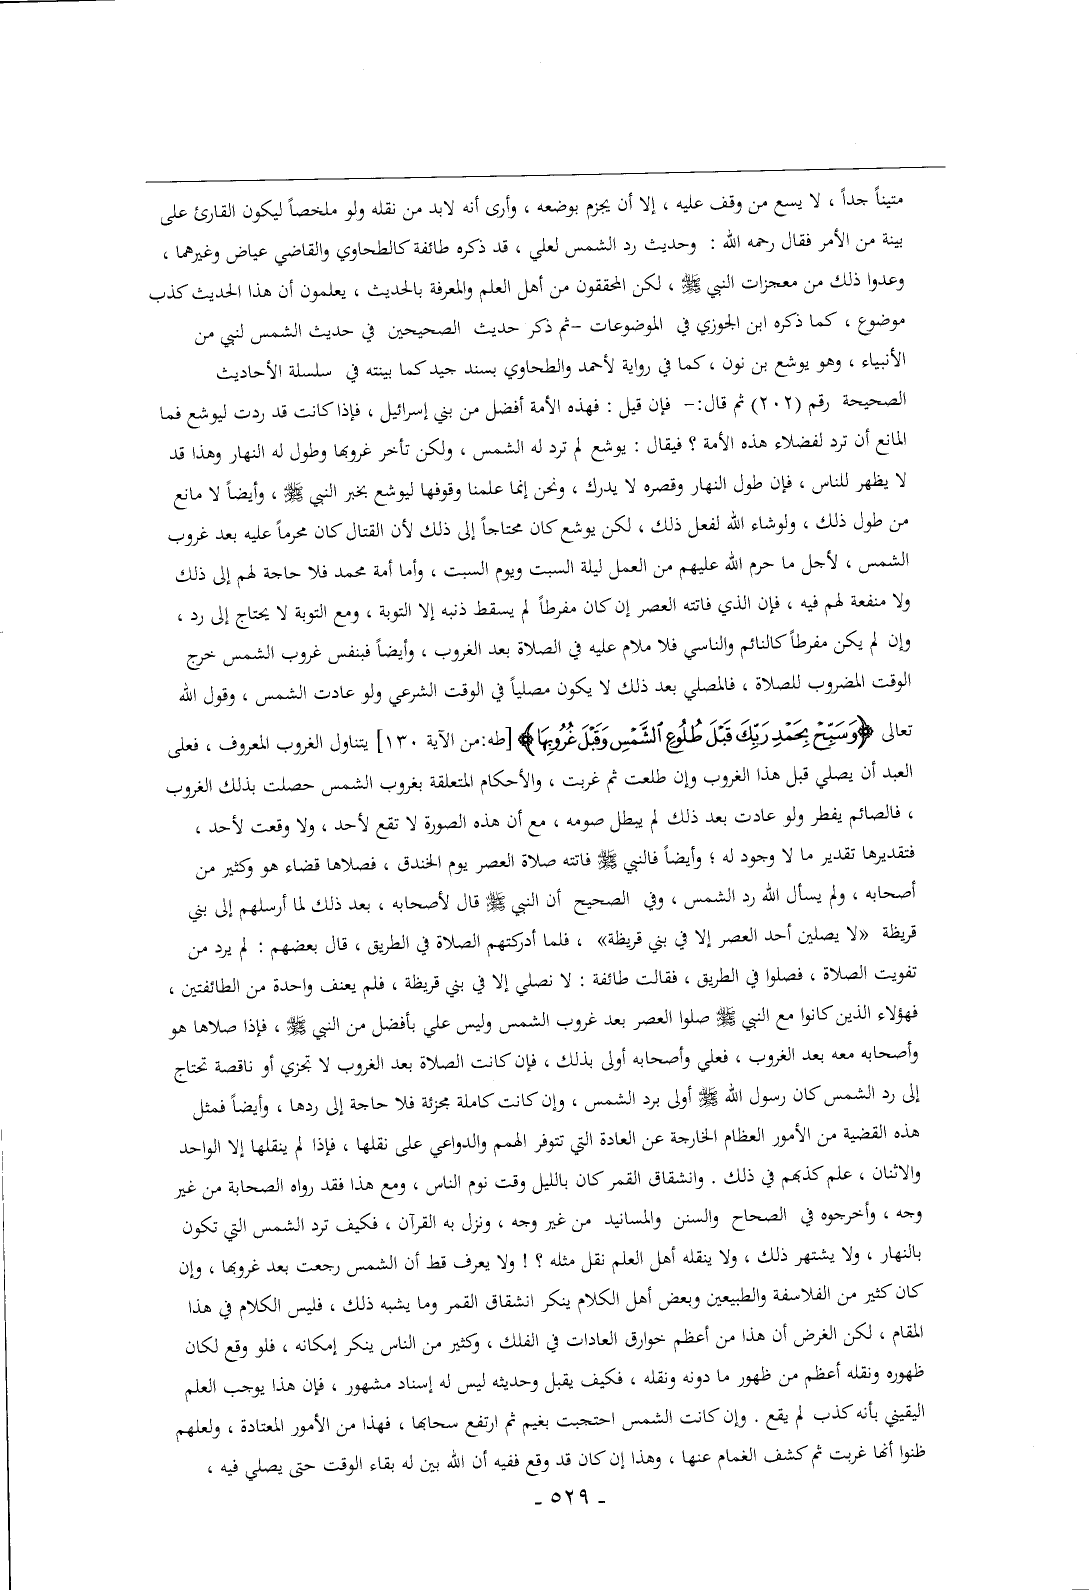 متيناً جداً ، لا يسع من وقف عليه ، إلا أن يجزم بوضعه ، وأرى أنه لابد من نقله ولو ملخصاً ليكون القارئ على
بينة من الأمر فقال رحمه الله : وحديث رد الشمس لعلي ، قد ذكره طائفة كالطحاوي والقاضي عياض وغيرهما ،
وعدوا ذلك من معجزات النبي ﷺ ، لكن المحققون من أهل العلم والمعرفة بالحديث ، يعلمون أن هذا الحديث كذب
موضوع ، كما ذكره ابن الجوزي في الموضوعات –ثم ذكر حديث الصحيحين في حديث الشمس لنبي من
الأنبياء ، وهو يوشع بن نون ، كما في رواية لأحمد والطحاوي بسند جيد كما بينته في سلسلة الأحاديث
الصحيحة رقم (٢٠٢) ثم قال:– فإن قيل : فهذه الأمة أفضل من بني إسرائيل ، فإذا كانت قد ردت ليوشع فما
المانع أن ترد لفضلاء هذه الأمة ؟ فيقال : يوشع لم ترد له الشمس ، ولكن تأخر غروبها وطول له النهار وهذا قد
لا يظهر للناس ، فإن طول النهار وقصره لا يدرك ، ونحن إنما علمنا وقوفها ليوشع بخبر النبي ﷺ ، وأيضاً لا مانع
من طول ذلك ، ولوشاء الله لفعل ذلك ، لكن يوشع كان محتاجاً إلى ذلك لأن القتال كان محرماً عليه بعد غروب
الشمس ، لأجل ما حرم الله عليهم من العمل ليلة السبت ويوم السبت ، وأما أمة محمد فلا حاجة لهم إلى ذلك
ولا منفعة لهم فيه ، فإن الذي فاتته العصر إن كان مفرطاً لم يسقط ذنبه إلا التوبة ، ومع التوبة لا يحتاج إلى رد ،
وإن لم يكن مفرطاً كالنائم والناسي فلا ملام عليه في الصلاة بعد الغروب ، وأيضاً فبنفس غروب الشمس خرج
الوقت المضروب للصلاة ، فالمصلي بعد ذلك لا يكون مصلياً في الوقت الشرعي ولو عادت الشمس ، وقول الله
تعالى ﴿وَسَبِّحْ بِحَمْدِ رَبِّكَ قَبْلَ طُلُوعِ ٱلشَّمْسِ وَقَبْلَ غُرُوبِهَا﴾ [طه:من الآية ١٣٠] يتناول الغروب المعروف ، فعلى
العبد أن يصلي قبل هذا الغروب وإن طلعت ثم غربت ، والأحكام المتعلقة بغروب الشمس حصلت بذلك الغروب
، فالصائم يفطر ولو عادت بعد ذلك لم يبطل صومه ، مع أن هذه الصورة لا تقع لأحد ، ولا وقعت لأحد ،
فتقديرها تقدير ما لا وجود له ؛ وأيضاً فالنبي ﷺ فاتته صلاة العصر يوم الخندق ، فصلاها قضاء هو وكثير من
أصحابه ، ولم يسأل الله رد الشمس ، وفي الصحيح أن النبي ﷺ قال لأصحابه ، بعد ذلك لما أرسلهم إلى بني
قريظة «لا يصلين أحد العصر إلا في بني قريظة» ، فلما أدركتهم الصلاة في الطريق ، قال بعضهم : لم يرد من
تفويت الصلاة ، فصلوا في الطريق ، فقالت طائفة : لا نصلي إلا في بني قريظة ، فلم يعنف واحدة من الطائفتين ،
فهؤلاء الذين كانوا مع النبي ﷺ صلوا العصر بعد غروب الشمس وليس علي بأفضل من النبي ﷺ ، فإذا صلاها هو
وأصحابه معه بعد الغروب ، فعلي وأصحابه أولى بذلك ، فإن كانت الصلاة بعد الغروب لا تجزي أو ناقصة تحتاج
إلى رد الشمس كان رسول الله ﷺ أولى برد الشمس ، وإن كانت كاملة مجزئة فلا حاجة إلى ردها ، وأيضاً فمثل
هذه القضية من الأمور العظام الخارجة عن العادة التي تتوفر الهمم والدواعي على نقلها ، فإذا لم ينقلها إلا الواحد
والاثنان ، علم كذبهم في ذلك . وانشقاق القمر كان بالليل وقت نوم الناس ، ومع هذا فقد رواه الصحابة من غير
وجه ، وأخرجوه في الصحاح والسنن والمسانيد من غير وجه ، ونزل به القرآن ، فكيف ترد الشمس التي تكون
بالنهار ، ولا يشتهر ذلك ، ولا ينقله أهل العلم نقل مثله ؟ ! ولا يعرف قط أن الشمس رجعت بعد غروبها ، وإن
كان كثير من الفلاسفة والطبيعين وبعض أهل الكلام ينكر انشقاق القمر وما يشبه ذلك ، فليس الكلام في هذا
المقام ، لكن الغرض أن هذا من أعظم خوارق العادات في الفلك ، وكثير من الناس ينكر إمكانه ، فلو وقع لكان
ظهوره ونقله أعظم من ظهور ما دونه ونقله ، فكيف يقبل وحديثه ليس له إسناد مشهور ، فإن هذا يوجب العلم
اليقيني بأنه كذب لم يقع . وإن كانت الشمس احتجبت بغيم ثم ارتفع سحابها ، فهذا من الأمور المعتادة ، ولعلهم
ظنوا أنها غربت ثم كشف الغمام عنها ، وهذا إن كان قد وقع ففيه أن الله بين له بقاء الوقت حتى يصلي فيه ،
- ٥٢٩ -